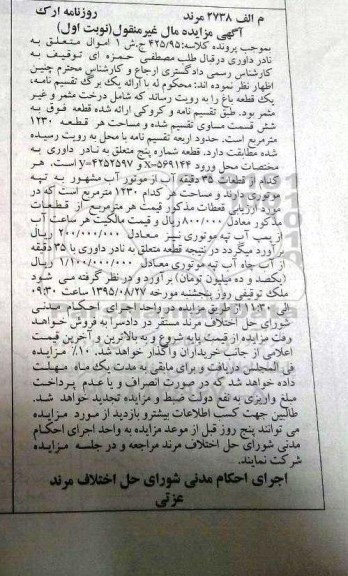 م الف ۲۷۳۸ مرند روزنامه ارک
آگهی مزایده مال غیرمنقول(نوبت اول)
بموجب پرونده کلاسه:۴۲۵/۹۵ ج.ش ۱ اموال متعلق به
نادر داوری درقبال طلب مصطفی حمزه ای توقیف به
کارشناس رسمی دادگستری ارجاع و کارشناس محترم چنین
اظهار نظر نموده اند: محکوم له با ارائه یک برگ تقسیم نامه،
یک قطعه باغ را به رویت رساند که شامل درخت مثمر و غیر
مثمر بود. طبق تقسیم نامه و کروکی ارائه شده قطعه فوق به
شش قسمت مساوی تقسیم شده و مساحت هر قطعه ۱۲۳۰
مترمربع است. حدود اربعه تقسیم نامه با محل به رویت رسیده
شده مطابقت دارد. قطعه شماره پنج متعلق به نادر داوری به
مختصات محل ورود x=۵۶۹۱۴۴ y=۴۲۵۲۵۹۷ است. هر
کدام از قطعات ۳۵ دقیقه آب از موتور آب مشهور به تپه
موتوری دارند و مساحت هر کدام ۱۲۳۰ مترمربع است که در
مورد ارزیابی قطعات مذکور قیمت هر مترمربع از قطعات
مذکور معادل ۸۰۰/۰۰۰ ریال و قیمت مالکیت هر ساعت آب
از پمپ آب تپه موتوری نیز معادل ۲۰۰/۰۰۰/۰۰۰ ریال
برآورد میگردد در نتیجه قطعه متعلق به نادر داوری با ۳۵ دقیقه
از آب چاه آب تپه موتوری معادل ۱/۱۰۰/۰۰۰/۰۰۰ ریال
(یکصد و ده میلیون تومان) برآورد و در نظر گرفته می شود
ملک توقیفی روز پنجشنبه مورخه ۱۳۹۵/۰۸/۲۷ ساعت ۰۹:۳۰
الی ۱۱:۳۰ از طریق مزایده در واحد اجرای احکام مدنی
شورای حل اختلاف مرند مستقر در دادسرا به فروش خواهد
رفت مزایده از قیمت پایه شروع و به بالاترین و آخرین قیمت
اعلامی از جانب خریداران واگذار خواهد شد. ۱۰٪ مزایده
فی المجلس دریافت و برای مابقی به مدت یک ماه مهلت
داده خواهد شد که در صورت انصراف و یا عدم پرداخت
مبلغ واریزی به نفع دولت ضبط و مزایده تجدید خواهد شد.
طالبین جهت کسب اطلاعات بیشتر و بازدید از مورد مزایده
می توانند پنج روز قبل از موعد مزایده به واحد اجرای احکام
مدنی شورای حل اختلاف مرند مراجعه و در جلسه مزایده
شرکت نمایند.
اجرای احکام مدنی شورای حل اختلاف مرند
عزتی